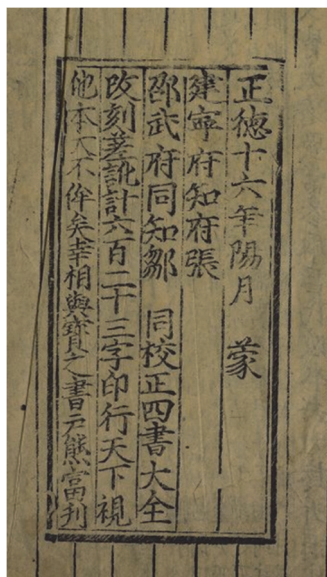 正德十六年陽月　蒙
建寧府知府張
邵武府同知鄒　同校正四書大全
改刻差訛計六百二十三字印行天下視
他本大不侔矣幸相與寶之書戶熊富刊